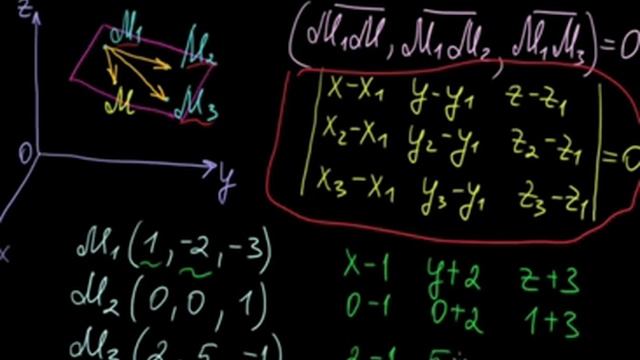 z
M₁
M₂
M
M₃
0
y
x
(M₁M, M₁M₂, M₁M₃) = 0
x-x₁ y-y₁ z-z₁
x₂-x₁ y₂-y₁ z₂-z₁ = 0
x₃-x₁ y₃-y₁ z₃-z₁
M₁(1, -2, -3)
M₂(0, 0, 1)
M₃(2, 5, -1)
x-1 y+2 z+3
0-1 0+2 1+3
2-1 5